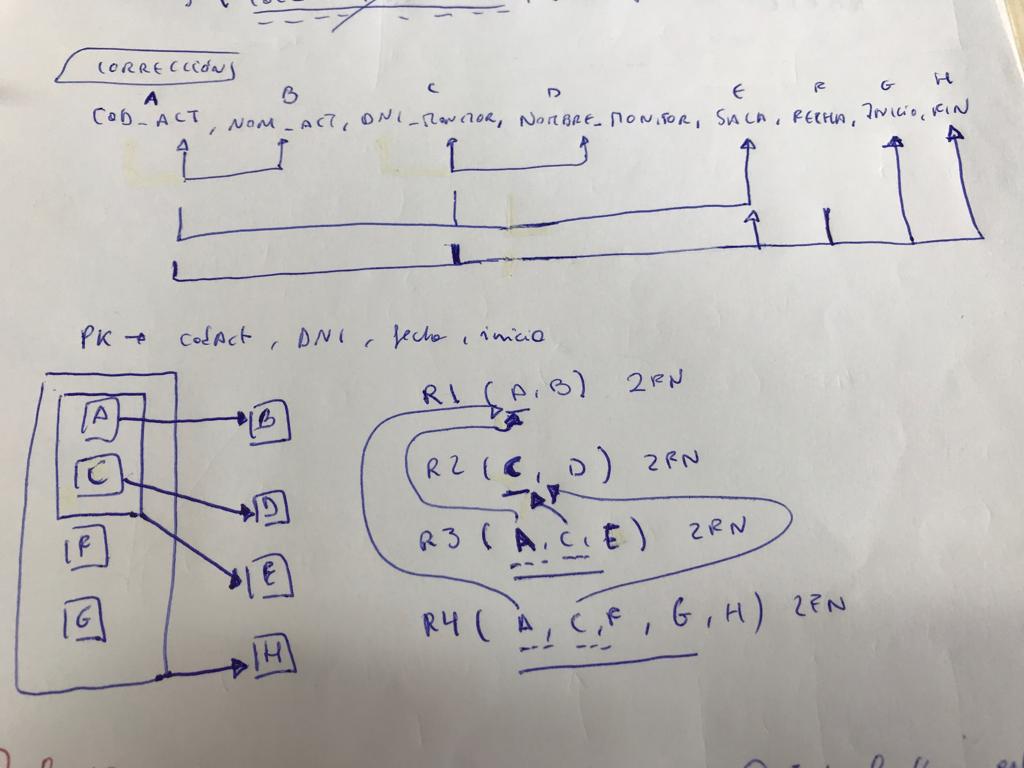 CORRECCIÓN
A B C D E F G H
COD_ACT, NOM_ACT, DNI_MONITOR, NOMBRE_MONITOR, SALA, FECHA, INICIO, FIN
PK → codAct, DNI, fecha, inicio
R1 (A, B) 2FN
A B
R2 (C, D) 2FN
C D
R3 (A, C, E) 2FN
F E
R4 (A, C, F, G, H) 2FN
G H